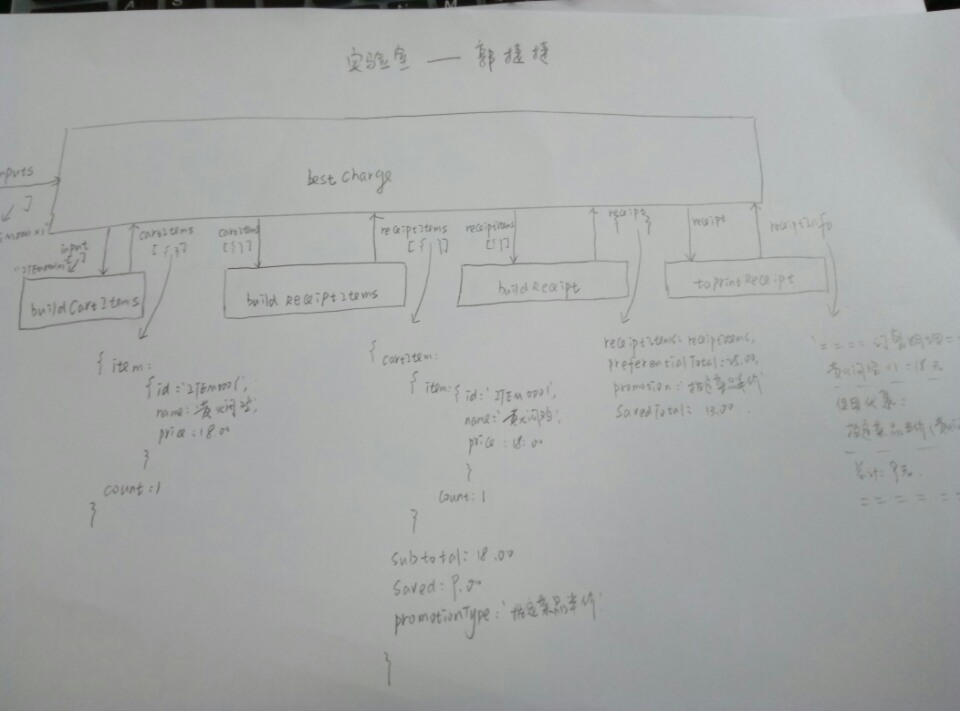 实验室 — 郭捷捷
inputs
best Charge
input
cartItems
[{ }]
cartItems
[{ }]
receiptItems
[{ }]
receiptItems
[{ }]
receipt
{ }
receipt
receiptInfo
buildCartItems
build receiptItems
buildReceipt
toprintReceipt
{ item:
{ id:'ITEM0001',
name:'黄焖鸡',
price:18.00
}
count:1
}
{ cartItem:
{ item:{ id:'ITEM0001',
name:'黄焖鸡',
price:18.00
}
count:1
}
subtotal:18.00
saved:9.00
promotionType:'指定菜品半价'
}
receiptItems:receiptItems,
preferentialTotal:25.00,
promotion:'指定菜品半价'
savedTotal:13.00
'==== 订餐明细 =
黄焖鸡 x1 = 18元
使用优惠:
指定菜品半价(黄焖
总计:9元
== = = =